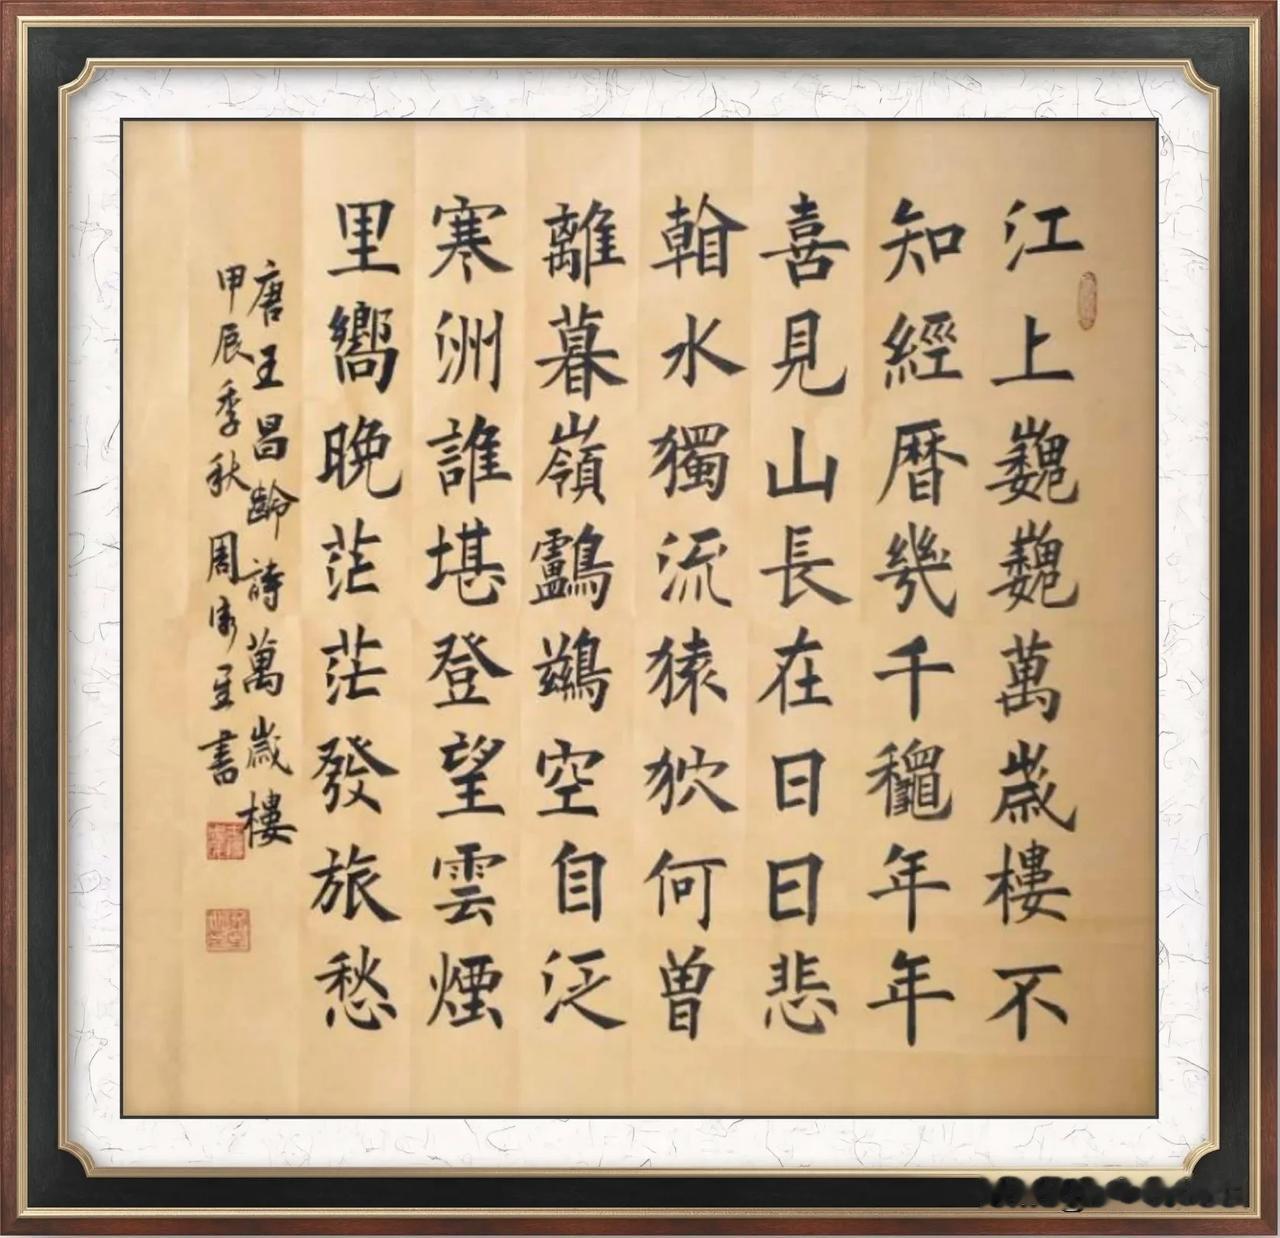 江上巍巍萬歲樓不
知經曆幾千龝年年
喜見山長在日日悲
水獨流猿狖何曾
離暮嶺鸕鷀空自泛
寒洲誰堪登望雲煙
里嚮晚茫茫發旅愁
唐王昌齡詩萬歲樓
甲辰季秋周星書